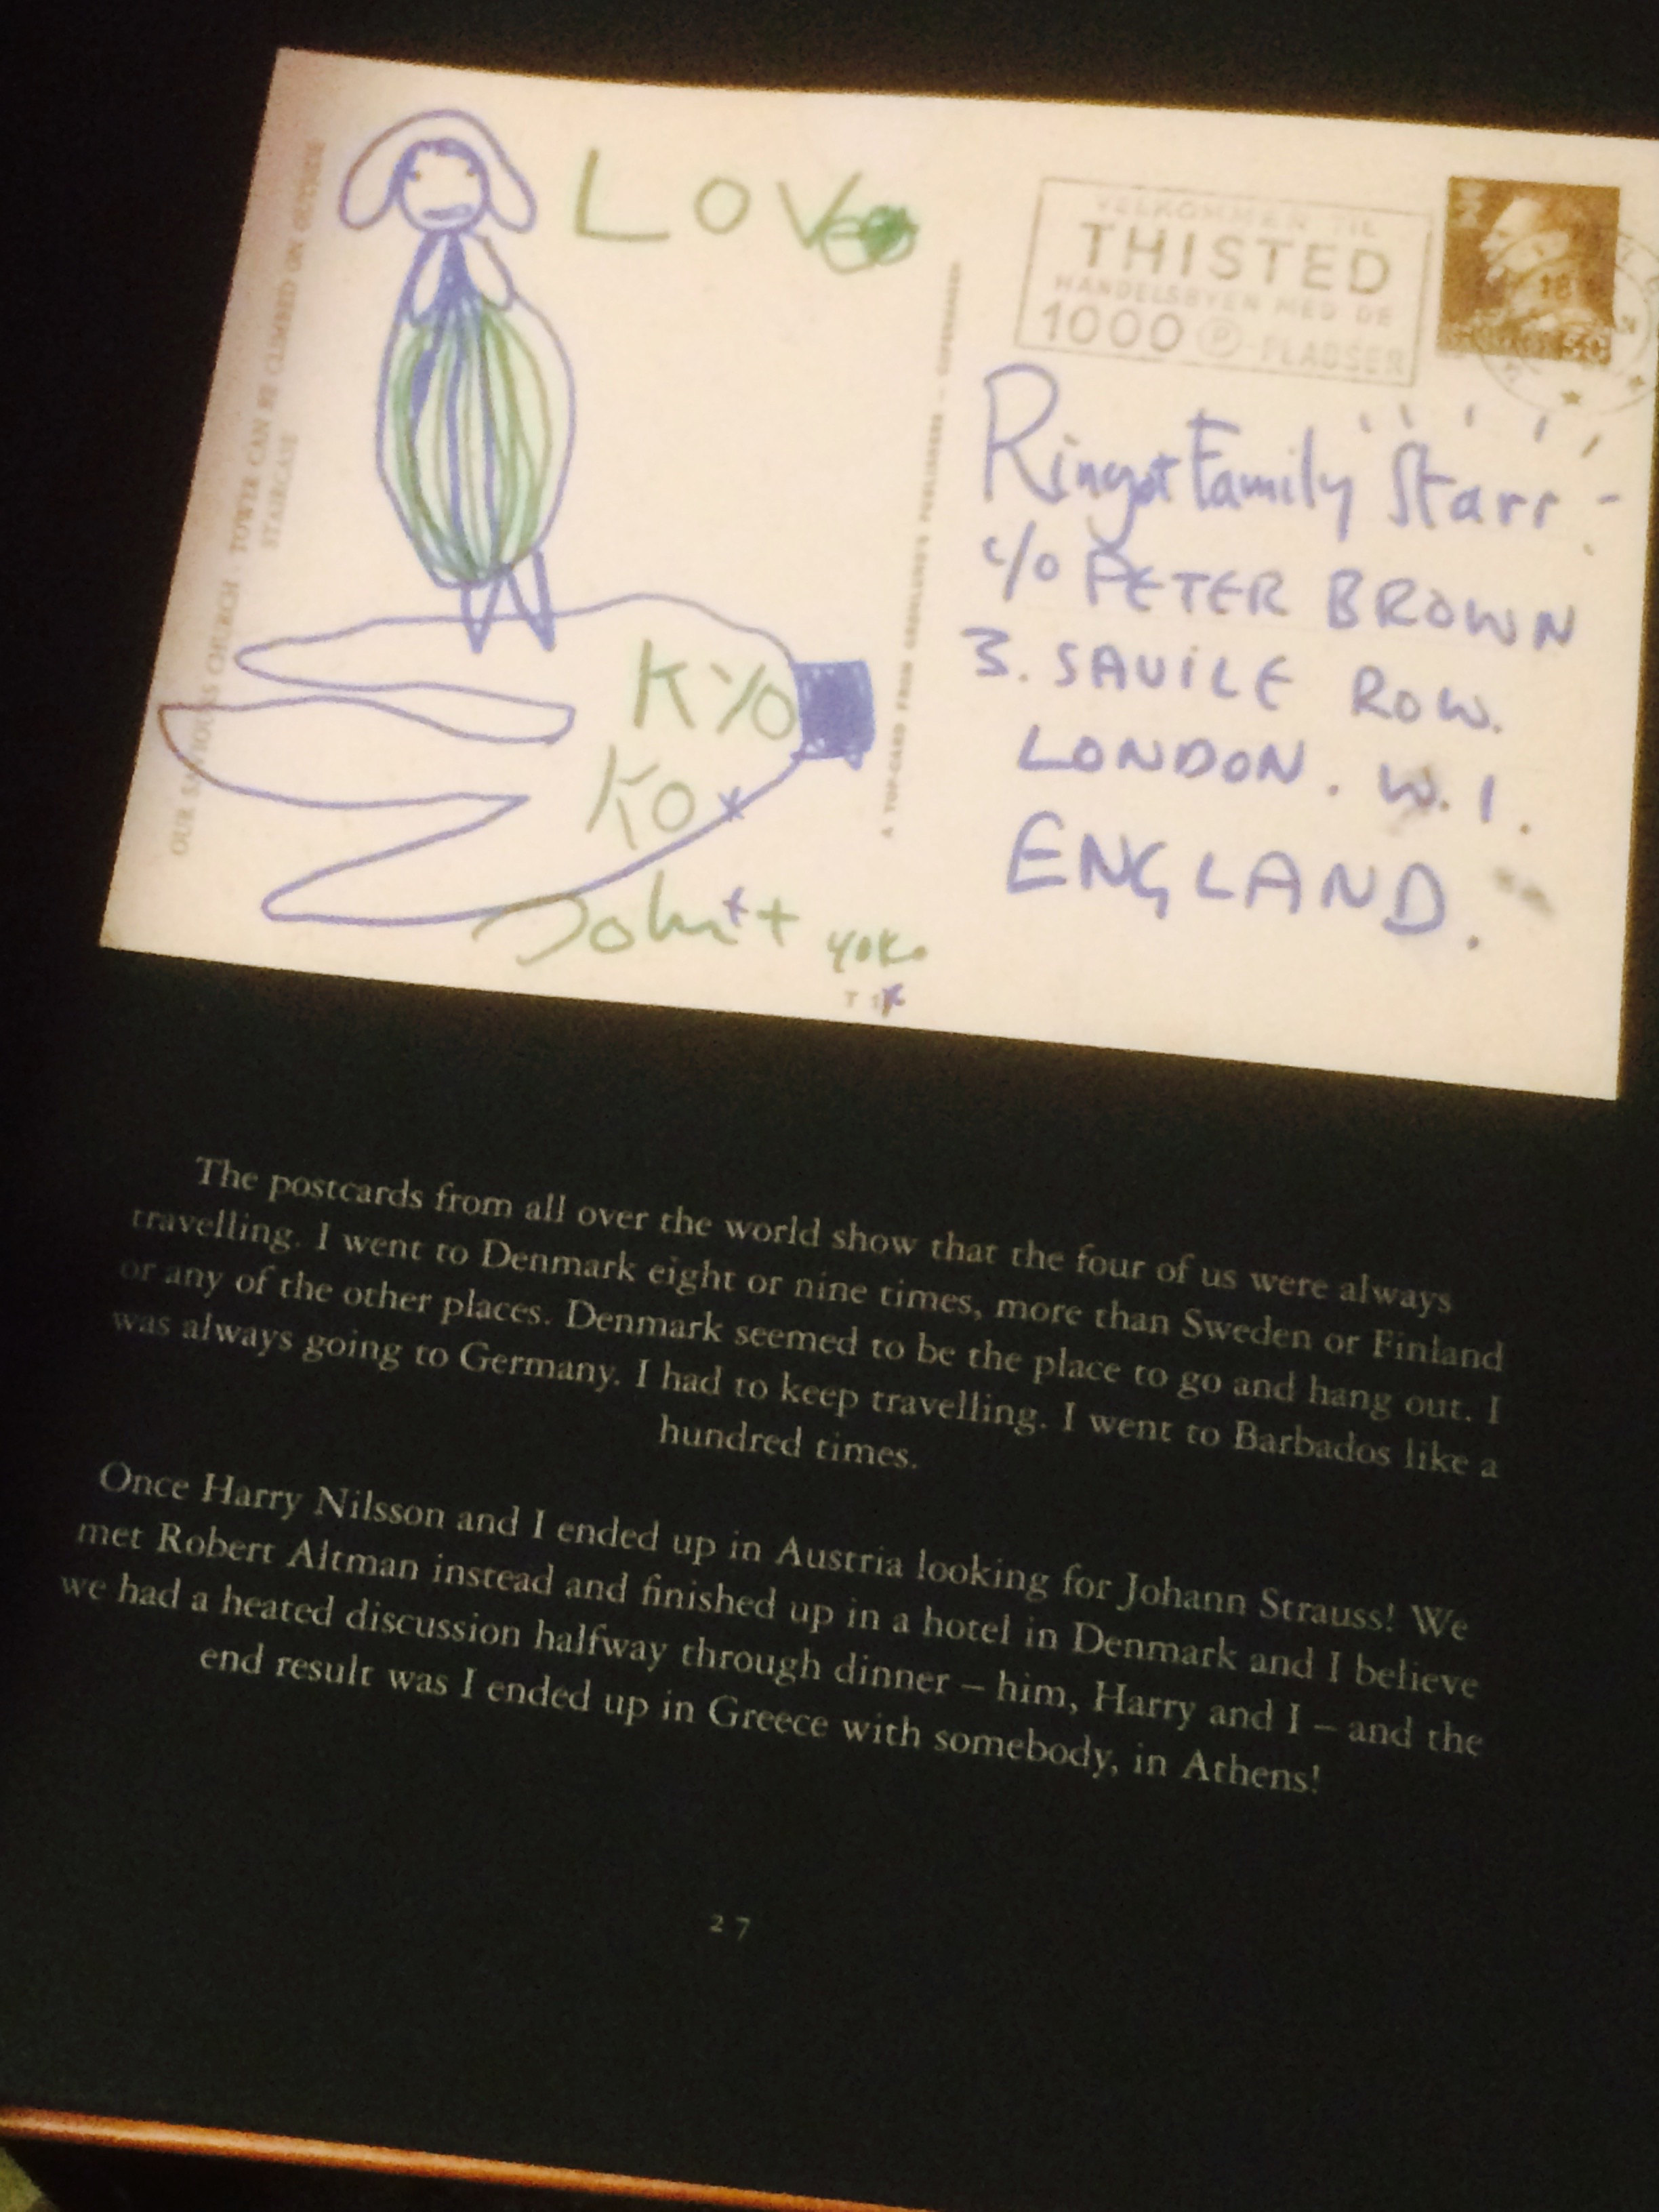 OUR SAVIOUR'S CHURCH · TOWER CAN BE CLIMBED ON OUTSIDE
STAIRCASE
LOVe
KYO
KO x
John + yoko
T
A TOP-CARD FROM GRØNLUND'S PUBLISHERS –
VELKOMMEN TIL
THISTED
HANDELSBYEN MED DE
1000 P-PLADSER
Ringo + Family Starr -
c/o PETER BROWN
3. SAVILE ROW.
LONDON. W. 1.
ENGLAND.
The postcards from all over the world show that the four of us were always
travelling. I went to Denmark eight or nine times, more than Sweden or Finland
or any of the other places. Denmark seemed to be the place to go and hang out. I
was always going to Germany. I had to keep travelling. I went to Barbados like a
hundred times.
Once Harry Nilsson and I ended up in Austria looking for Johann Strauss! We
met Robert Altman instead and finished up in a hotel in Denmark and I believe
we had a heated discussion halfway through dinner – him, Harry and I – and the
end result was I ended up in Greece with somebody, in Athens!
27